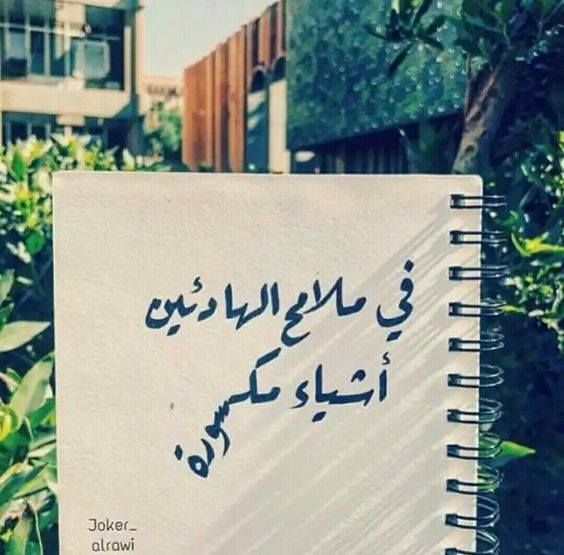 في ملامح الهادئين
أشياء مكسورة
Joker_
alrawi